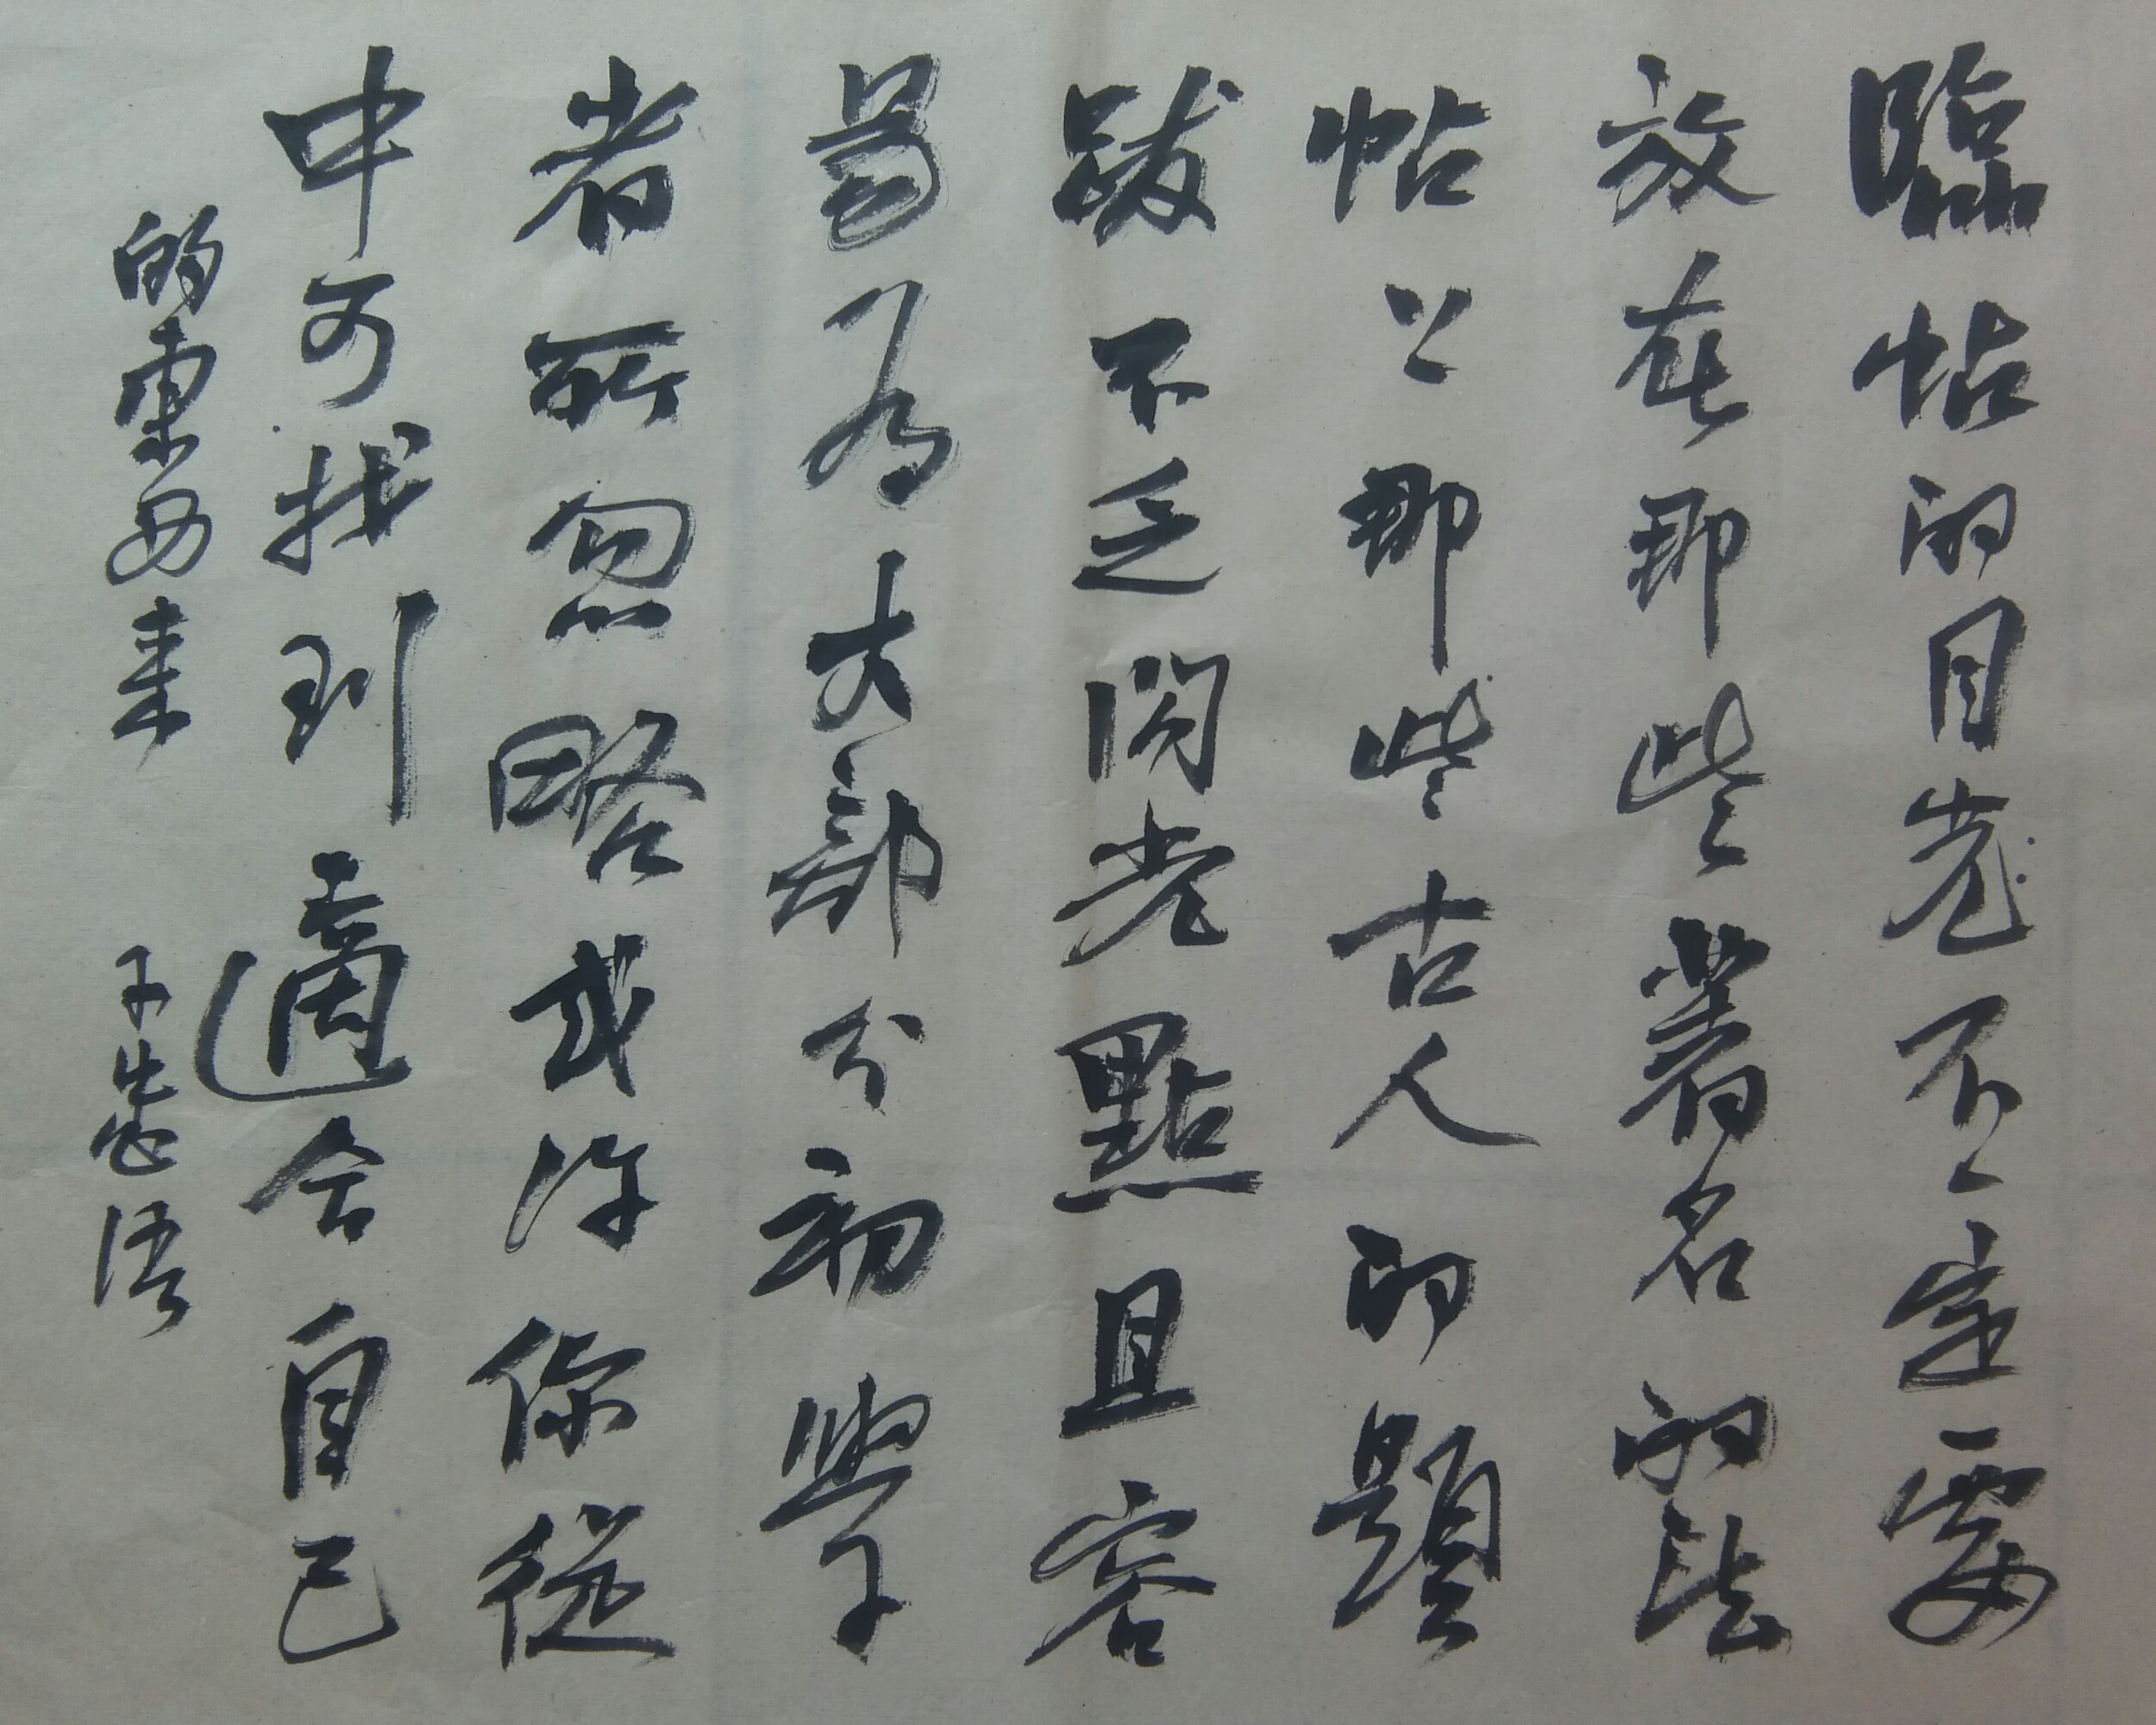 臨帖的目光不一定要
放在那些著名的法
帖上那些古人的題
跋不乏閃光點且容
易為大部分初學
者所忽略或許你從
中可找到適合自己
的東西來
子告語